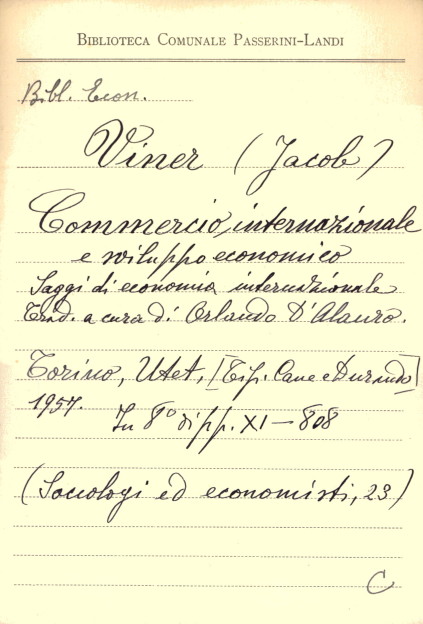 BIBLIOTECA COMUNALE PASSERINI-LANDI
Bibl. Econ.
Viner (Jacob)
Commercio internazionale
e sviluppo economico
Saggi di economia internazionale
Trad. a cura di Orlando D'Alauro.
Torino, Utet, [Tip. Cane e Durando]
1957.
In 8° di pp. XI - 808
(Sociologi ed economisti, 23)
C